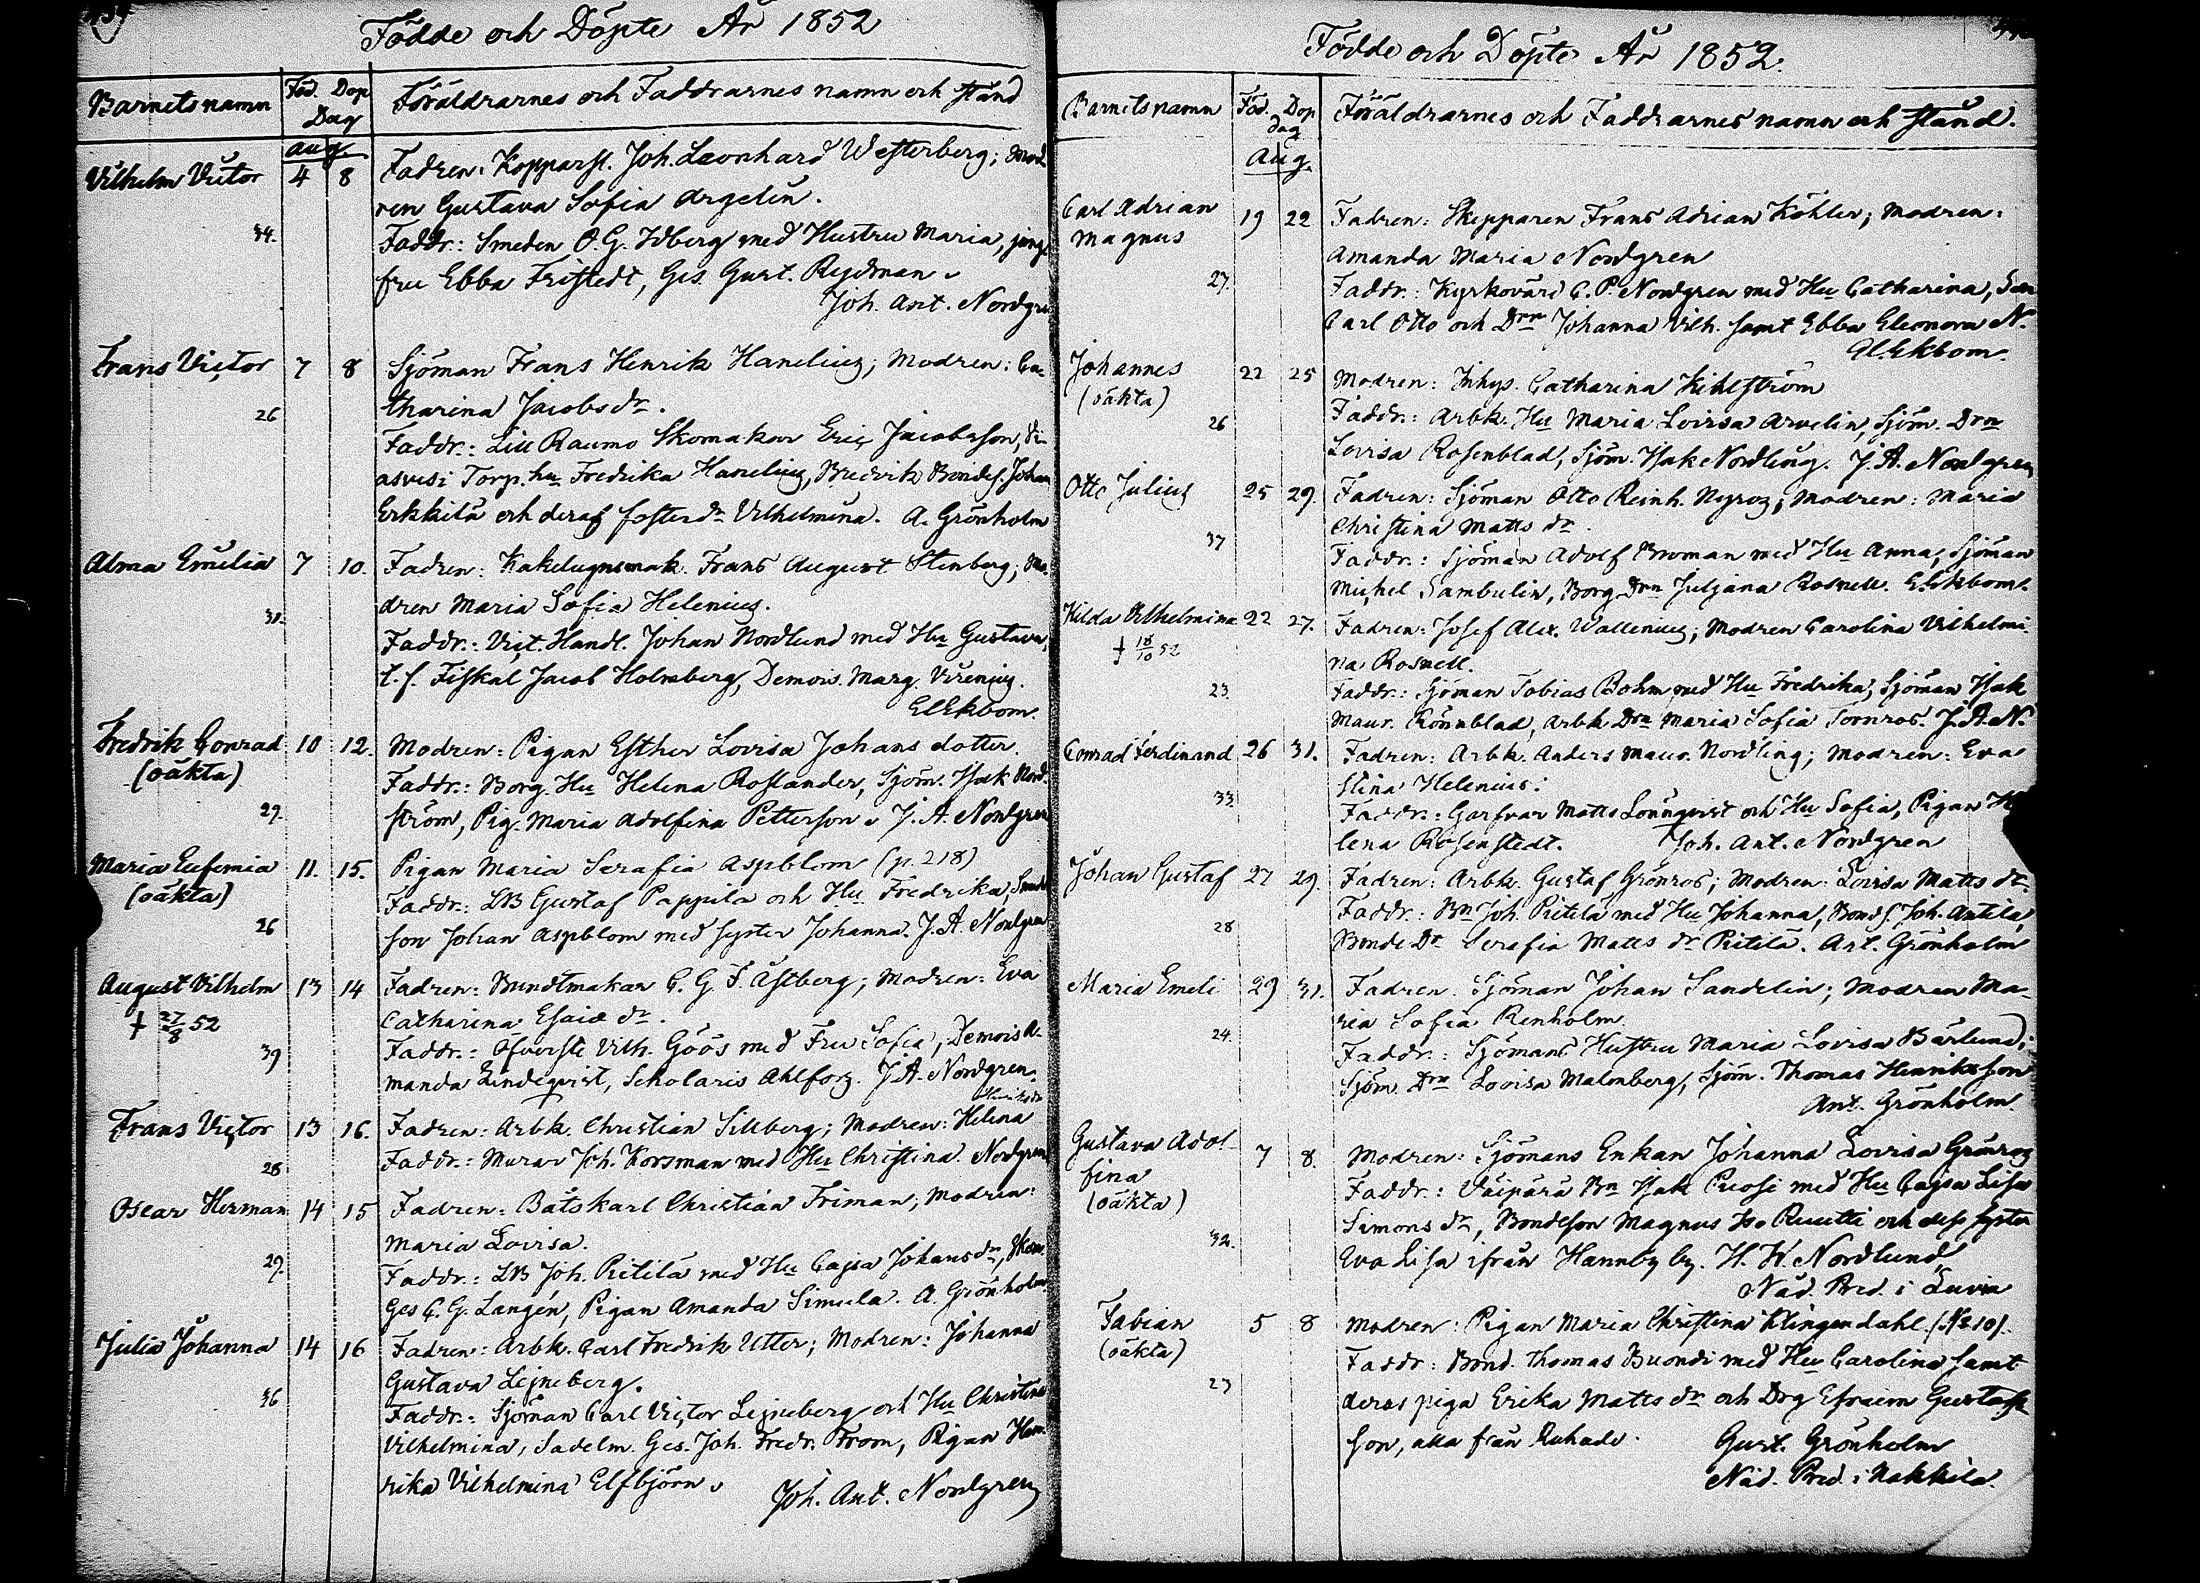 Födde och Döpte År 1852
Barnets namn Föd. Dop Föräldrarnes och Faddrarnes namn och stånd
Dag
Aug.
Vilhelm Victor 4 8 Fadren: Kopparsl. Joh. Leonhard Westerberg; Mod
ren Gustava Sofia Argelin.
34. Faddr.: Smeden O. G. Idberg med Hustru Maria, jung
fru Ebba Fristedt, Ges. Gust. Rydman
Joh. Ant. Nordgre
Frans Victor 7 8 Sjöman Frans Henrik Hanelius; Modren: Ca-
26 tharina Jacobs dr.
Faddr.: Lill Raumo Skomakar Eric Jacobsson, Vi
asvesi Torp. hu Fredrika Hanelius, Bredvik Bondes. Johan
Erkkilä och deras foster dr Vilhelmina. A. Grönholm
Alma Emilia 7 10. Fadren: Kakelugnsmak. Frans August Stenberg; Mo.
dren Maria Sofia Helenius.
31. Faddr.: Vict. Handl. Johan Nordlund med Hu Gustava,
t. f. Fiskal Jacob Holmberg, Demois. Marg. Virenius.
El Ekbom.
Fredrik Conrad 10 12. Modren: Pigan Esther Lovisa Johans dotter.
(oäkta) Faddr.: Borg. Hu Helena Roslander, Sjöm. Isak Nord
29. ström, Pig. Maria Adolfina Petterson. J. A. Nordgren
Maria Eufemia 11. 15. Pigan Maria Serafia Aspblom (p. 218)
(oäkta) Faddr.: LB Gustaf Pappila och Hu Fredrika,
26 son Johan Aspblom med syster Johanna. J. A. Nordgren
August Vilhelm 13 14 Fadren: Bundtmakar C. G. F. Åstberg; Modren: Eva
† 27/8 52 Catharina Esaiæ dr.
39 Faddr.: Öfverste Vilh. Göös med Fru Sofia, Demois A-
manda Lindeqvist, Scholaris Ahlfors. J. A. Nordgren.
Frans Victor 13 16. Fadren: Arbk. Christian Sillberg; Modren: Helena
28 Faddr.: Murar Joh. Korsman med Hu Christina. Nordgren
Oscar Herman 14 15 Fadren: Båtskarl Christian Friman; Modren:
Maria Lovisa.
29. Faddr.: LB Joh. Pietilä med Hu Cajsa Johans dr, Skom.
Ges C. G. Langén, Pigan Amanda Simula. A. Grönholm
Julia Johanna 14 16 Fadren: Arbk. Carl Fredrik Utter; Modren: Johanna
Gustava Lejneberg.
36 Faddr.: Sjöman Carl Victor Lejneberg och Hu Christina
Vilhelmina, Sadelm. Ges. Joh. Fredr. From, Pigan Hen
rika Vilhelmina Elfbjörn.
Joh. Ant. Nordgren
Födde och Döpte År 1852.
Barnets namn Föd. Dop Föräldrarnes och Faddrarnes namn och stånd.
dag
Aug.
Carl Adrian 19 22 Fadren: Skepparen Frans Adrian Köhler; Modren:
Magnus Amanda Maria Nordgren
27. Faddr.: Kyrkovärd C. P. Nordgren med Hu Catharina, Son
Carl Otto och Drr Johanna Vilh. samt Ebba Eleonora N.
El. Ekbom.
Johannes 22 25 Modren: Inhys. Catharina Kihlström
(oäkta) Faddr.: Arbk. Hu Maria Lovisa Arvelin, Sjöm. Drn
26 Lovisa Rosenblad, Sjöm. Isak Nordling. J. A. Nordgren
Otto Julius 25 29. Fadren: Sjöman Otto Reinh. Nyroos; Modren: Maria
Christina Matts dr.
37 Faddr.: Sjöman Adolf Broman med Hu Anna, Sjöman
Michel Sambulin, Borg Drn Juljana Rosnell. El. Ekbom.
Hilda Vilhelmina 22 27. Fadren: Josef Alex. Wallenius; Modren Carolina Vilhelmi
† 18/10 52 na Rosnell.
23. Faddr.: Sjöman Tobias Bohm med Hu Fredrika, Sjöman Isak
Maur. Rönnblad, Arbk Drn Maria Sofia Törnros. J. A. N.
Conrad Ferdinand 26 31. Fadren: Arbk. Anders Maur. Nordling; Modren: Eva
Stina Helenius.
33. Faddr.: Garfvar Matts Lönnqvist och Hu Sofia, Pigan He
lena Rosenstedt. Joh. Ant. Nordgren
Johan Gustaf 27 29. Fadren: Arbk. Gustaf Grönros; Modren: Lovisa Matts dr.
Faddr.: Bn Joh. Pietilä med Hu Johanna, Bonds. Joh. Antila,
28 Bonde Dr Serafia Matts dr Pitilä. Ant. Grönholm
Maria Emeli 29 31. Fadren. Sjöman Johan Sandelin; Modren Ma-
ria Sofia Renholm.
24. Faddr.: Sjömans Hustru Maria Lovisa Bärlund;
Sjöm. Drn Lovisa Malmberg, Sjöm. Thomas Henriksson
Ant. Grönholm.
Gustava Adol- 7 8. Modren: Sjömans Enkan Johanna Lovisa Grönroos
fina Faddr.: Väipärä Bn Isak Puosi med Hu Cajsa Lisa
(oäkta) Simons dr, Bondeson Magnus Iso Ruutti och dess syster
32. Eva Lisa ifrån Hannby by. H. W. Nordlund,
Nåd. Pred. i Luvia
Fabian 5 8 Modren: Pigan Maria Christina Klingendahl. (No 10).
(oäkta) Faddr: Bond. Thomas Buondi med Hu Carolina samt
23 deras piga Erika Matts dr och Drg Efraim Gustafs
son, alla från Ruhade. Gust. Grönholm
Nåd. Pred. i Nakkila.